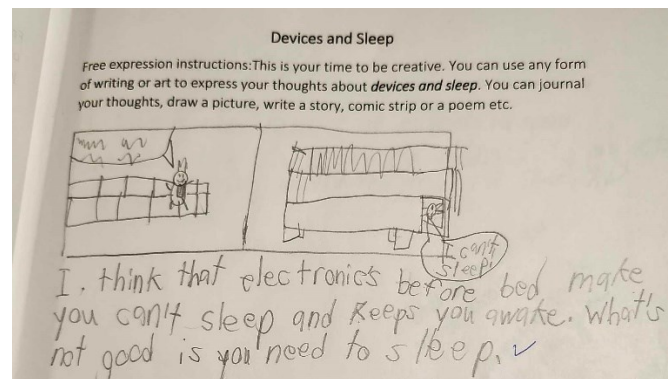 Devices and Sleep
Free expression instructions:This is your time to be creative. You can use any form
of writing or art to express your thoughts about devices and sleep. You can journal
your thoughts, draw a picture, write a story, comic strip or a poem etc.
I can't
sleep!
I. think that electronics before bed make
you can't sleep and keeps you awake. What's
not good is you need to sleep.